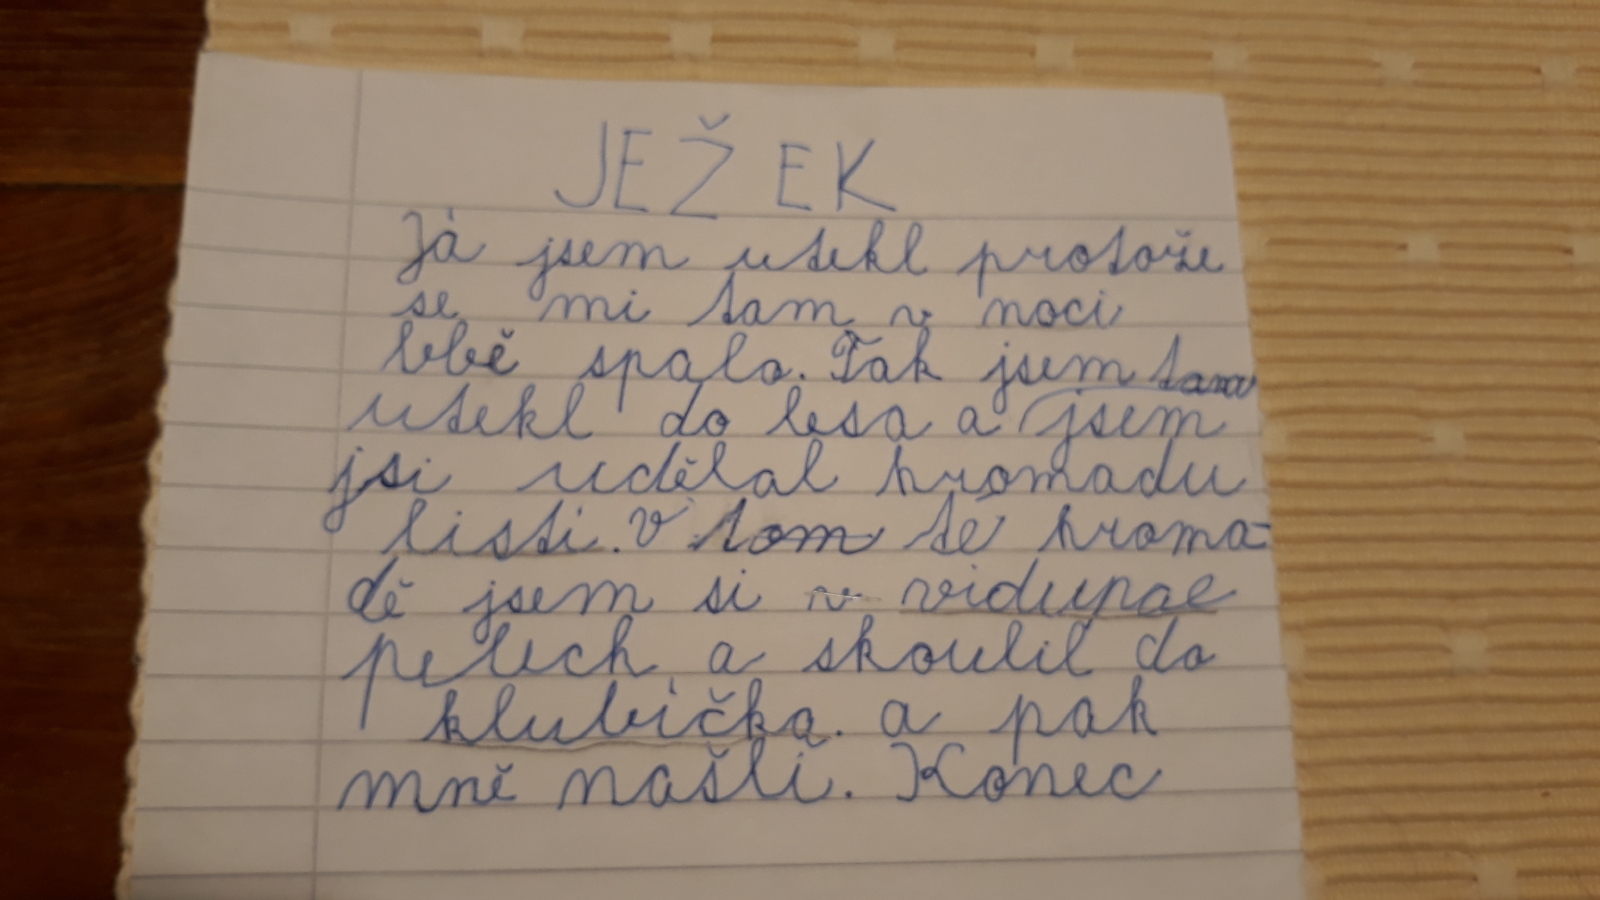 JEŽEK
Já jsem utekl protože
se mi tam v noci
blbě spalo. Tak jsem tam
utekl do lesa a jsem
jsi udělal hromadu
listí. V tom té hroma-
dě jsem si v vidupal
pelech a skoulil do
klubíčka. a pak
mně našli. Konec